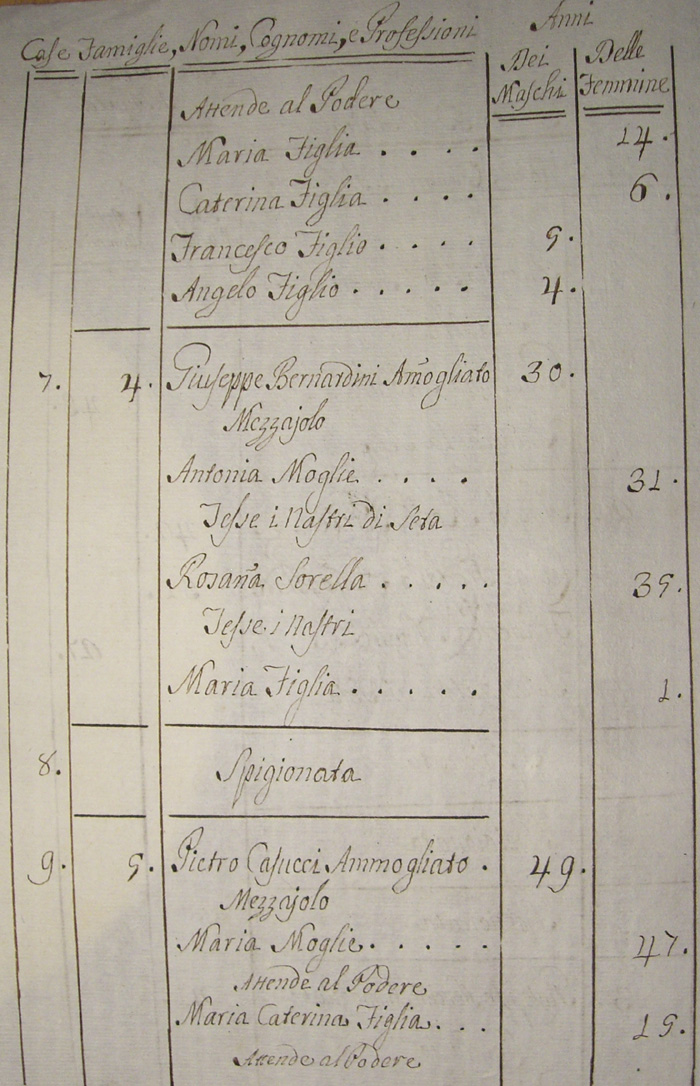 Anni
Case Famiglie, Nomi, Cognomi, e Professioni Dei Maschi Delle Femmine
Attende al Podere
Maria Figlia . . . . 14.
Caterina Figlia . . . . 6.
Francesco Figlio . . . . 5.
Angelo Figlio . . . . . 4.
7. 4. Giuseppe Bernardini Am̃ogliato 30.
Mezzajolo
Antonia Moglie . . . . 31.
Tesse i Nastri di Seta
Rosan̄a Sorella . . . . . 35.
Tesse i Nastri
Maria Figlia . . . . . 1.
8. Spigionata
9. 5. Pietro Casucci Ammogliato . 49.
Mezzajolo
Maria Moglie . . . . . 47.
Attende al Podere
Maria Caterina Figlia . . . 15.
Attende al Podere